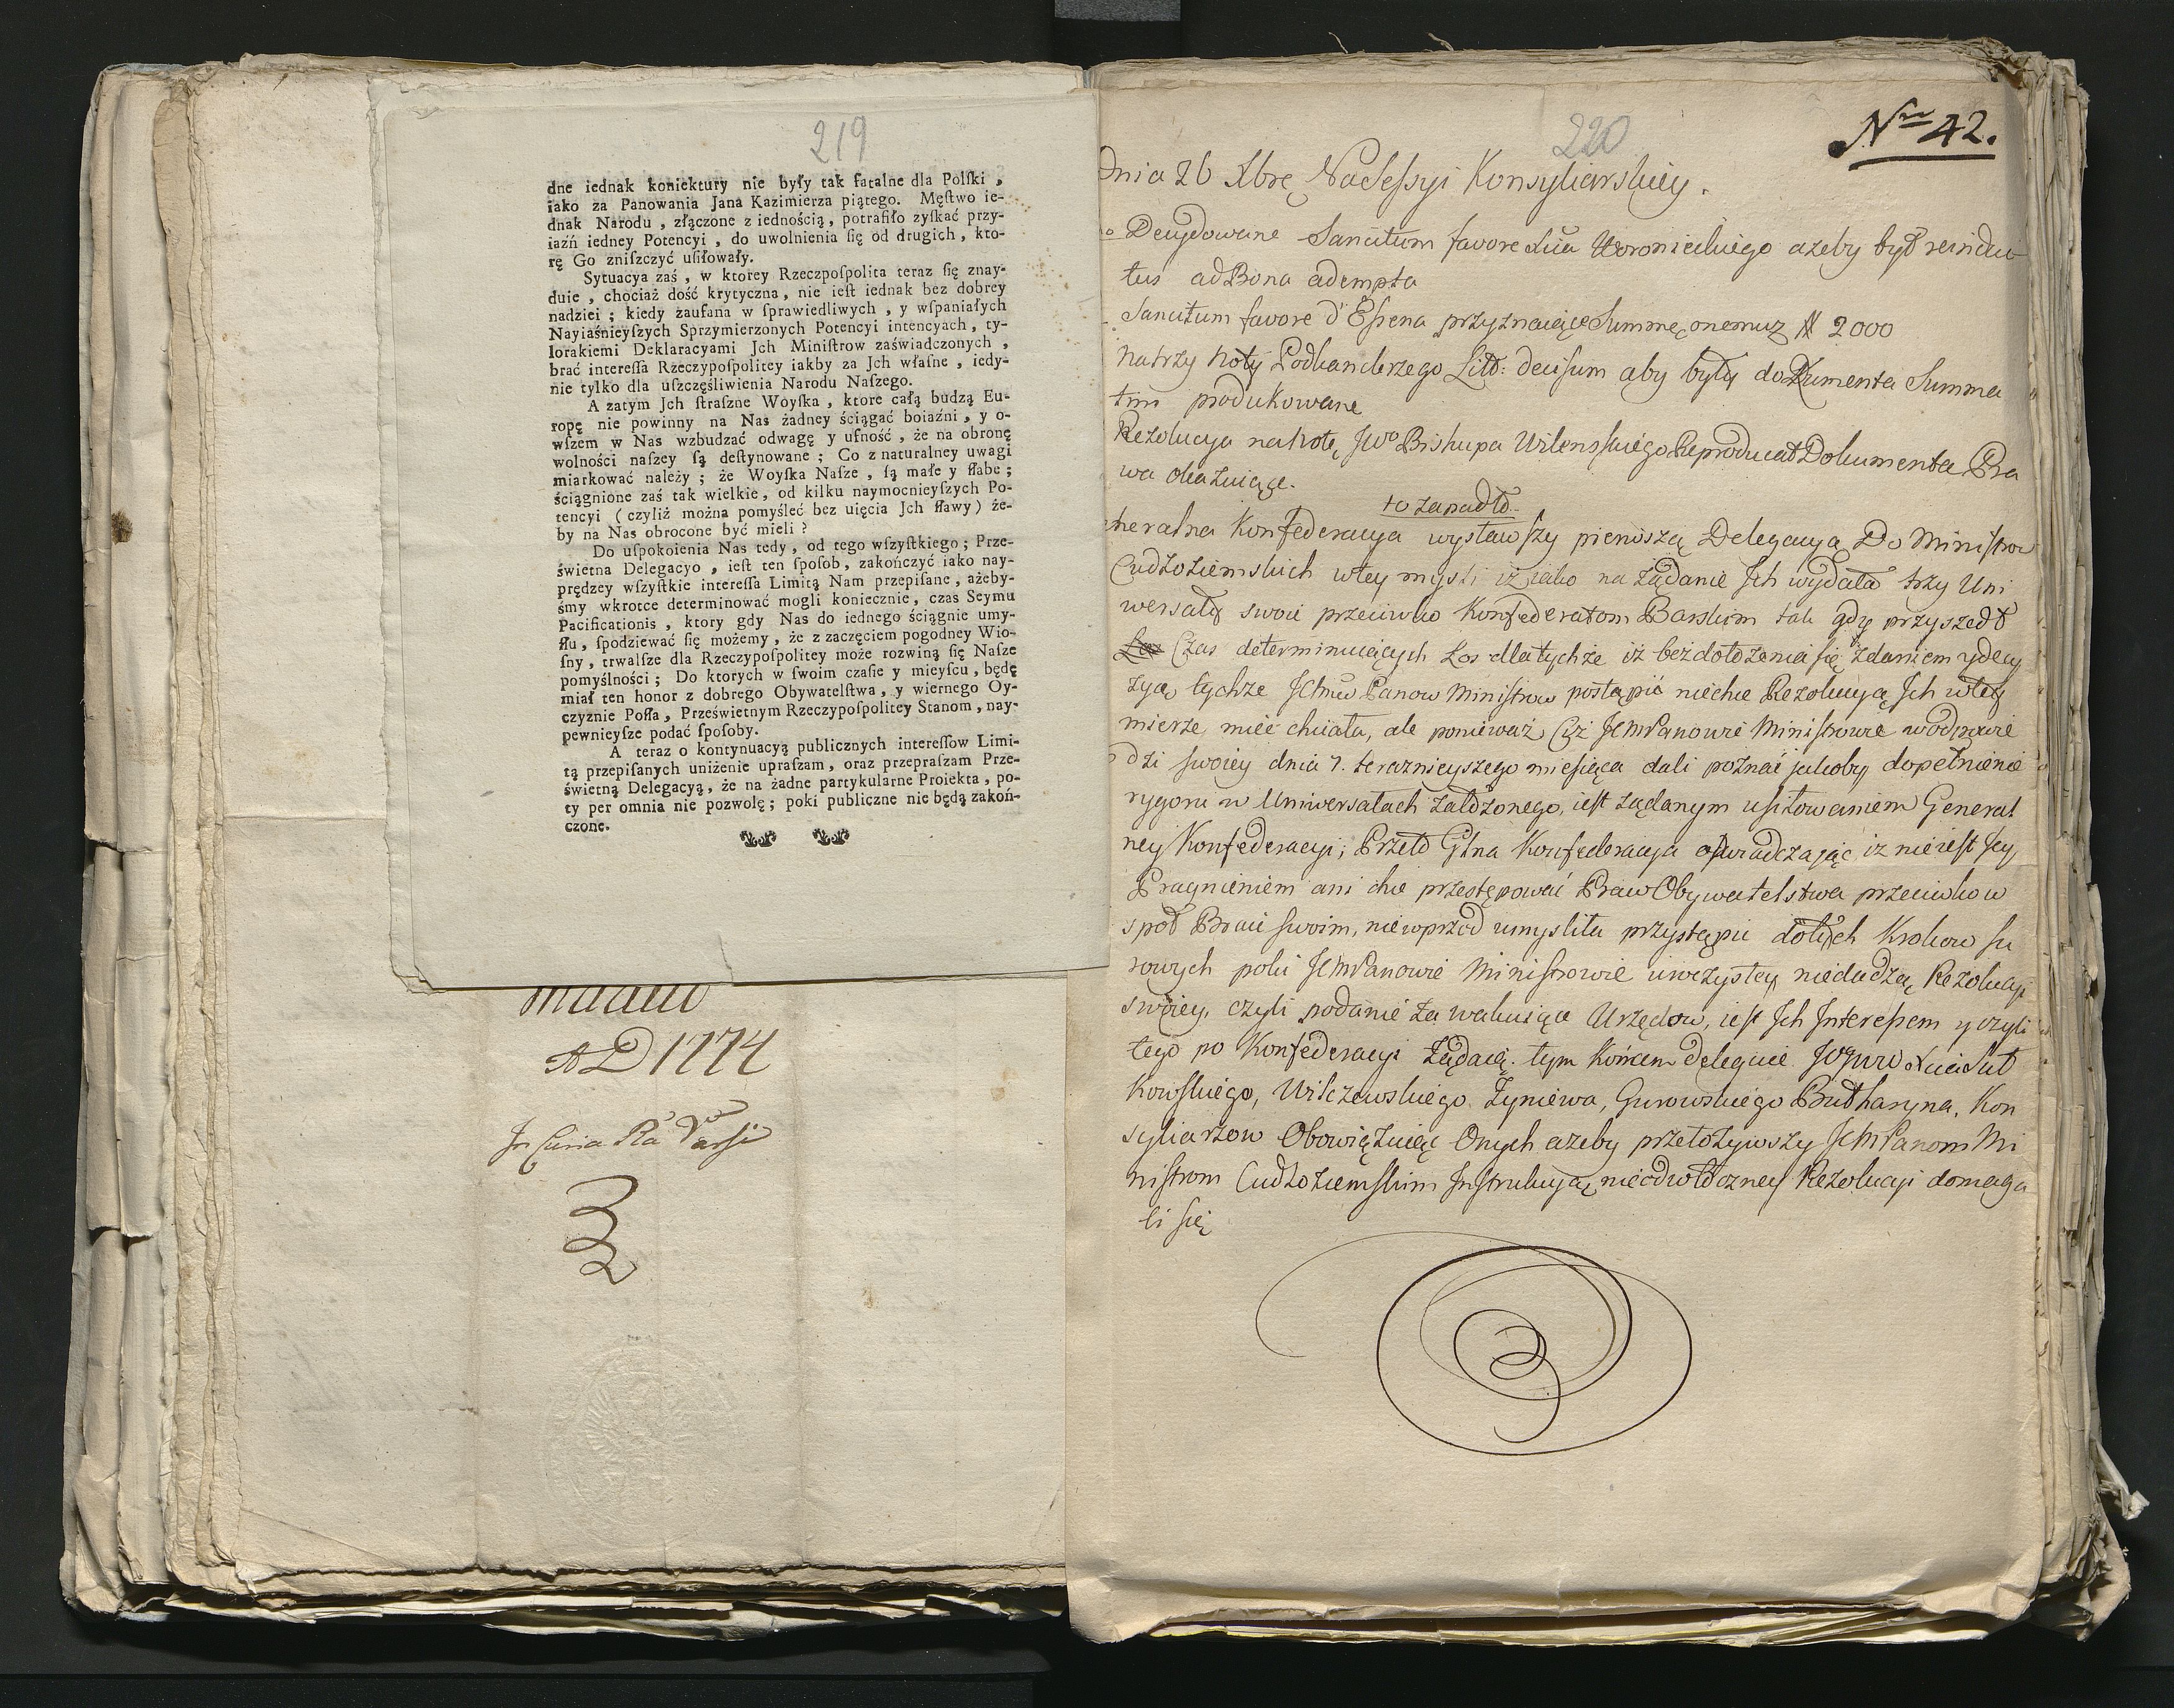 219
dne iednak koniektury nie były tak fatalne dla Polſki ,
iako za Panowania Jana Kazimierza piątego. Męſtwo ie-
dnak Narodu , złączone z iednością, potrafiło zyſkać przy-
iaźń iedney Potencyi , do uwolnienia ſię od drugich , kto-
rę Go zniſzczyć uſiłowały.
Sytuacya zaś , w ktorey Rzeczpoſpolita teraz ſię znay-
duie , chociaż dość krytyczna , nie ieſt iednak bez dobrey
nadziei ; kiedy zaufana w ſprawiedliwych , y wſpaniałych
Nayiaśnieyſzych Sprzymierzonych Potencyi intencyach, ty-
lorakiemi Deklaracyami Jch Miniſtrow zaświadczonych ,
brać intereſſa Rzeczypoſpolitey iakby za Jch właſne , iedy-
nie tylko dla uſzczęśliwienia Narodu Naſzego.
A zatym Jch ſtraſzne Woyſka , ktore całą budzą Eu-
ropę nie powinny na Nas żadney ściągać boiaźni , y o-
wſzem w Nas wzbudzać odwagę y ufność , że na obronę
wolności naſzey ſą deſtynowane ; Co z naturalney uwagi
miarkować należy ; że Woyſka Naſze , ſą małe y ſłabe ;
ściągnione zaś tak wielkie, od kilku naymocnieyſzych Po-
tencyi ( czyliż można pomyśleć bez uięcia Jch ſławy ) że-
by na Nas obrocone być mieli ?
Do uſpokoienia Nas tedy , od tego wſzyſtkiego ; Prze-
świetna Delegacyo , ieſt ten ſpoſob, zakończyć iako nay-
prędzey wſzyſtkie intereſſa Limitą Nam przepiſane , ażeby-
śmy wkrotce determinować mogli koniecznie, czas Seymu
Pacificationis , ktory gdy Nas do iednego ściągnie umy-
ſłu , ſpodziewać ſię możemy , że z zaczęciem pogodney Wio-
ſny , trwalſze dla Rzeczypoſpolitey może rozwiną ſię Naſze
pomyślności ; Do ktorych w ſwoim czaſie y mieyſcu , będę
miał ten honor z dobrego Obywatelſtwa , y wiernego Oy-
czyznie Poſła , Prześwietnym Rzeczypoſpolitey Stanom , nay-
pewnieyſze podać ſpoſoby.
A teraz o kontynuacyą publicznych intereſſow Limi-
tą przepiſanych uniżenie upraſzam , oraz przepraſzam Prze-
świetną Delegacyą, że na żadne partykularne Proiekta , po-
ty per omnia nie pozwolę ; poki publiczne nie będą zakoń-
czone.
AD 1774
In Curia
220
Nro 42.
Dnia 26 Xbrę Na Seſsyi Konsyliarskiey.
Decydowane Sancitum favore Xcia Woronieckiego azeby był reindu
tus ad Bona adempta
Sancitum favore d'Eſsena przyznaiące Summę onemuz # 2000
Na trzy Noty Podkanclerzego Litt: decisum aby były dokumenta Summa
tim produkowane
Rezolucya na Notę Jwo Biskupa Wilenskiego Reproducat Dokumenta Pra
wa okazuiące.
to zapadło.
neralna Konfederacya wysław ſzy pierwszą Delegacyą Do Ministrow
Cudzoziemskich w tey mysli iż iako na Żądanie Jch wydała trzy Uni
wersały swoie przeciwko Konfederatom Barskim tak gdy przyszedł
Czas determinuiących Los dla tychże iż bez dołozenia się zdaniem y decy
zyą tychże JchMw Panow Ministrow postąpić niechce Rezolucyą Jch w tey
mierze mieć chciała, ale ponieważ Ciż JchMPanowie Ministrowie w odpowie
dzi swoiey dnia 7. terazniejszego miesiąca dali poznać jakoby dopełnienie
rygoru w Uniwersałach załozonego, iest żądanym usiłowaniem General
ney Konfederacyi; Przeto Glna Konfederacya oswiadczając iz nie iest Jey
Pragnieniem ani chce przestępować Praw Obywatelstwa przeciwko w
społ Braci swoim, nie wprzod umysliła przystąpić do tych Krokow su
rowych poki JchMPanowie Ministrowie uroczystey niedadzą Rezolucyi
swoiey, czyli podanie za wakuiące Urzędow, iest Jch Interessem y czyli
tego po Konfederacyi Żądaią. tym końcem deleguie Sul
kowskiego, Wilczewskiego Żyniewa, Gurowskiego Bułharyna, Kon
syliarzow Obowiązuiąc Onych azeby przełożywszy JchMPanom Mi
nistrom Cudzoziemskim Instrukcyą nieodwłoczney Rezolucyi domaga
li się